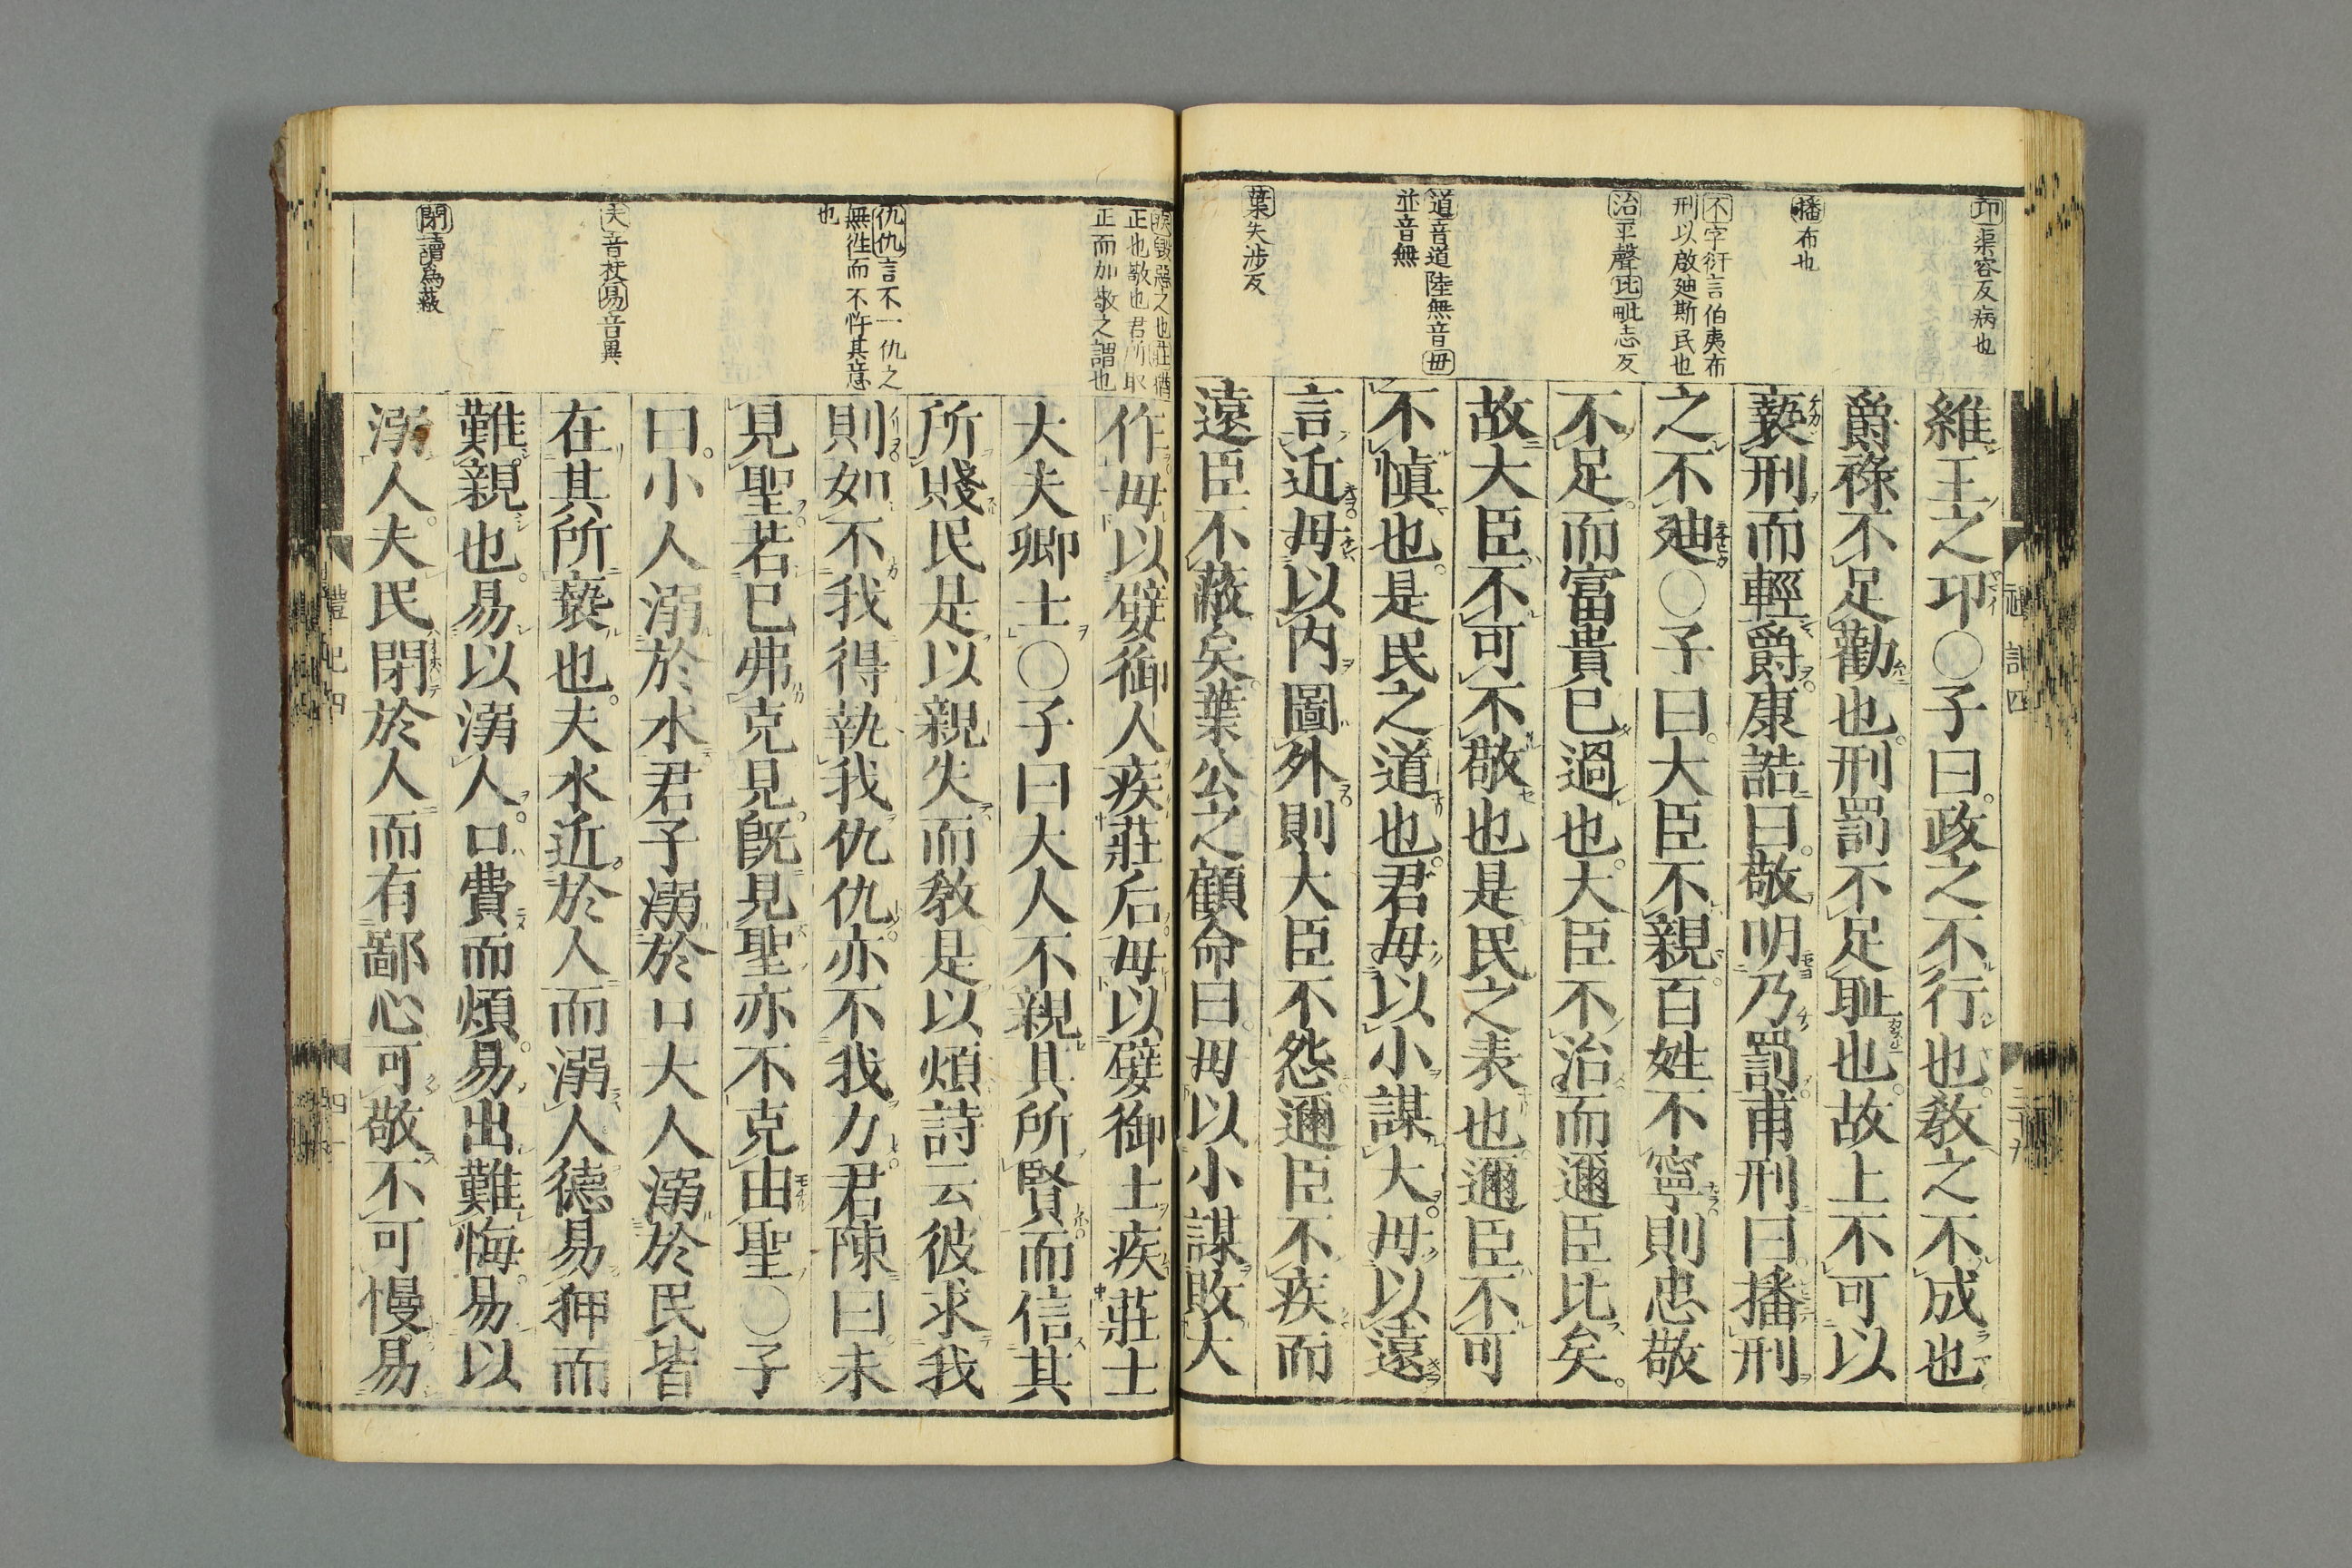 卭渠容反病也
播布也
不字衍言伯夷布
刑以啟廸斯民也
治平聲比毗志反
道音道陸無音毌
並音無
葉失涉反
維王之卭○子曰政之不行也敎之不成也
爵祿不足勸也刑罰不足耻也故上不可以
褻刑而輕爵康誥曰敬明乃罰甫刑曰播刑
之不廸○子曰大臣不親百姓不寧則忠敬
不足而富貴已過也大臣不治而邇臣比矣
故大臣不可不敬也是民之表也邇臣不可
不愼也是民之道也君毋以小謀大毋以遠
言近毋以内圖外則大臣不怨邇臣不疾而
遠臣不蔽矣葉公之顧命曰毋以小謀敗大
疾毀惡之也莊猶
正也敬也君所取
正而加敬之謂也
仇仇言不一仇之
無徃而不忤其意
也
夫音扶易音異
閉讀爲蔽
作毋以嬖御人疾莊后毋以嬖御士疾莊士
大夫卿士○子曰大人不親其所賢而信其
所賤民是以親失而敎是以煩詩云彼求我
則如不我得執我仇仇亦不我力君陳曰未
見聖若已弗克見旣見聖亦不克由聖○子
曰小人溺於水君子溺於口大人溺於民皆
在其所褻也夫水近於人而溺人德易狎而
難親也易以溺人口費而煩易出難悔易以
溺人夫民閉於人而有鄙心可敬不可慢易
禮記四
四十